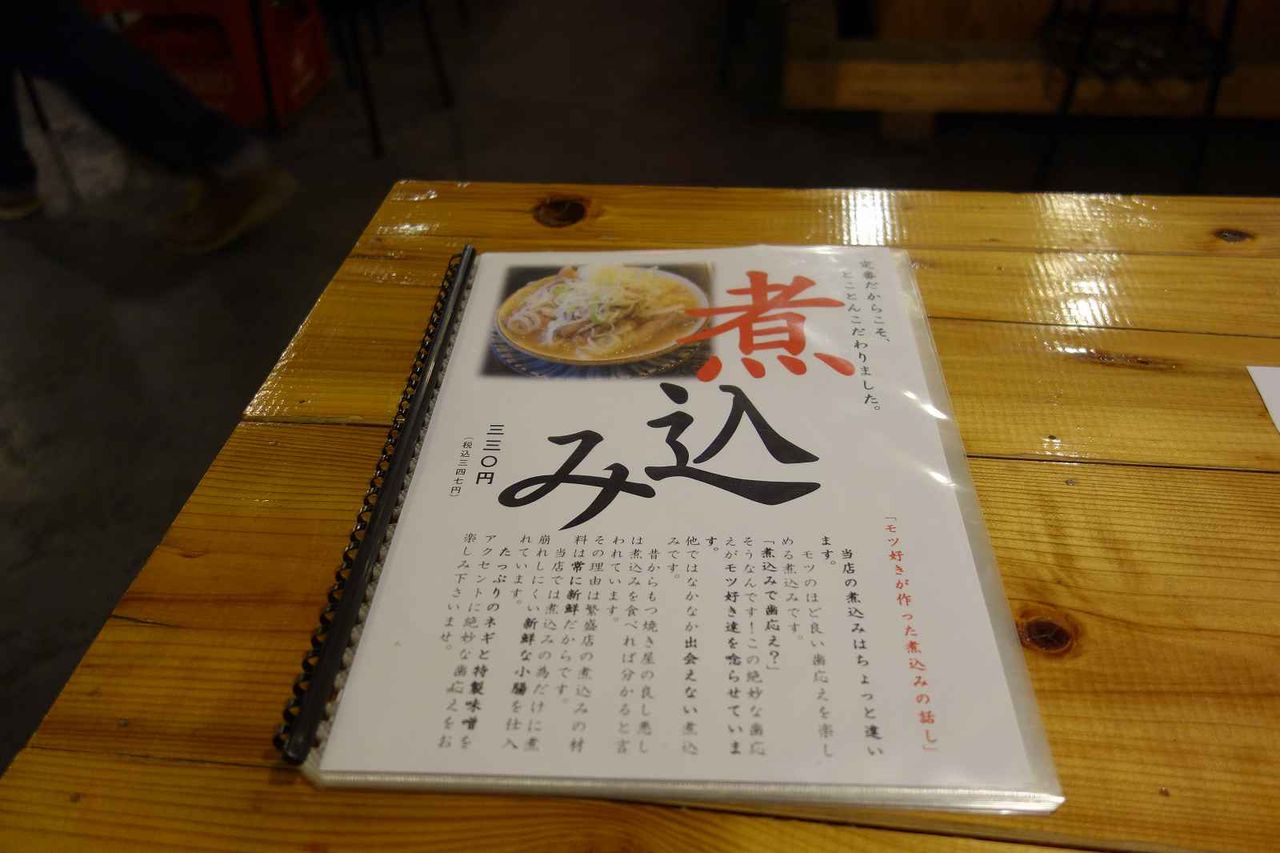 定番だからこそ、
とことんこだわりました。
煮込み
三三〇円
（税込三四七円）
「モツ好きが作った煮込みの話し」
当店の煮込みはちょっと違い
ます。
モツのほど良い歯応えを楽し
める煮込みです。
「煮込みで歯応え？」
そうなんです！この絶妙な歯応
えがモツ好き達を唸らせていま
す。
他ではなかなか出会えない煮込
みです。
昔からもつ焼き屋の良し悪し
は煮込みを食べれば分かると言
われています。
その理由は繁盛店の煮込みの材
料は常に新鮮だからです。
当店では煮込みの為だけに煮
崩れしにくい新鮮な小腸を仕入
れています。
たっぷりのネギと特製味噌を
アクセントに絶妙な歯応えをお
楽しみ下さいませ。